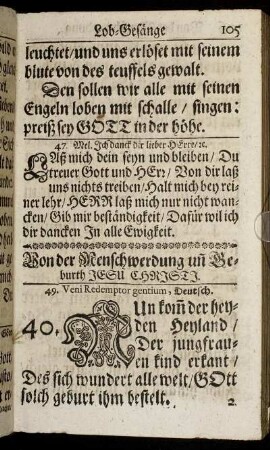 Lob-Gesänge 105
leuchtet/und uns erlöset mit seinem
blute von des teuffels gewalt.
Den sollen wir alle mit seinen
Engeln loben mit schalle / singen:
preiß sey GOTT in der höhe.
47. Mel. Ich danck dir lieber HErre/ꝛc.
LAß mich dein seyn und bleiben / Du
treuer Gott und HErr/ Von dir laß
uns nichts treiben/Halt mich bey rei-
ner lehr/ HERR laß mich nur nicht wan-
cken/Gib mir beständigkeit/ Dafür wil ich
dir dancken In alle Ewigkeit.
Von der Menschwerdung uñ Ge-
burth JESU CHRISTI.
49. Veni Redemptor gentium, Deutsch.
40. NUn kom̃ der hey-
den Heyland /
Der jungfrau-
en kind erkant /
Des sich wundert alle welt/GOtt
solch geburt ihm bestelt.
2.